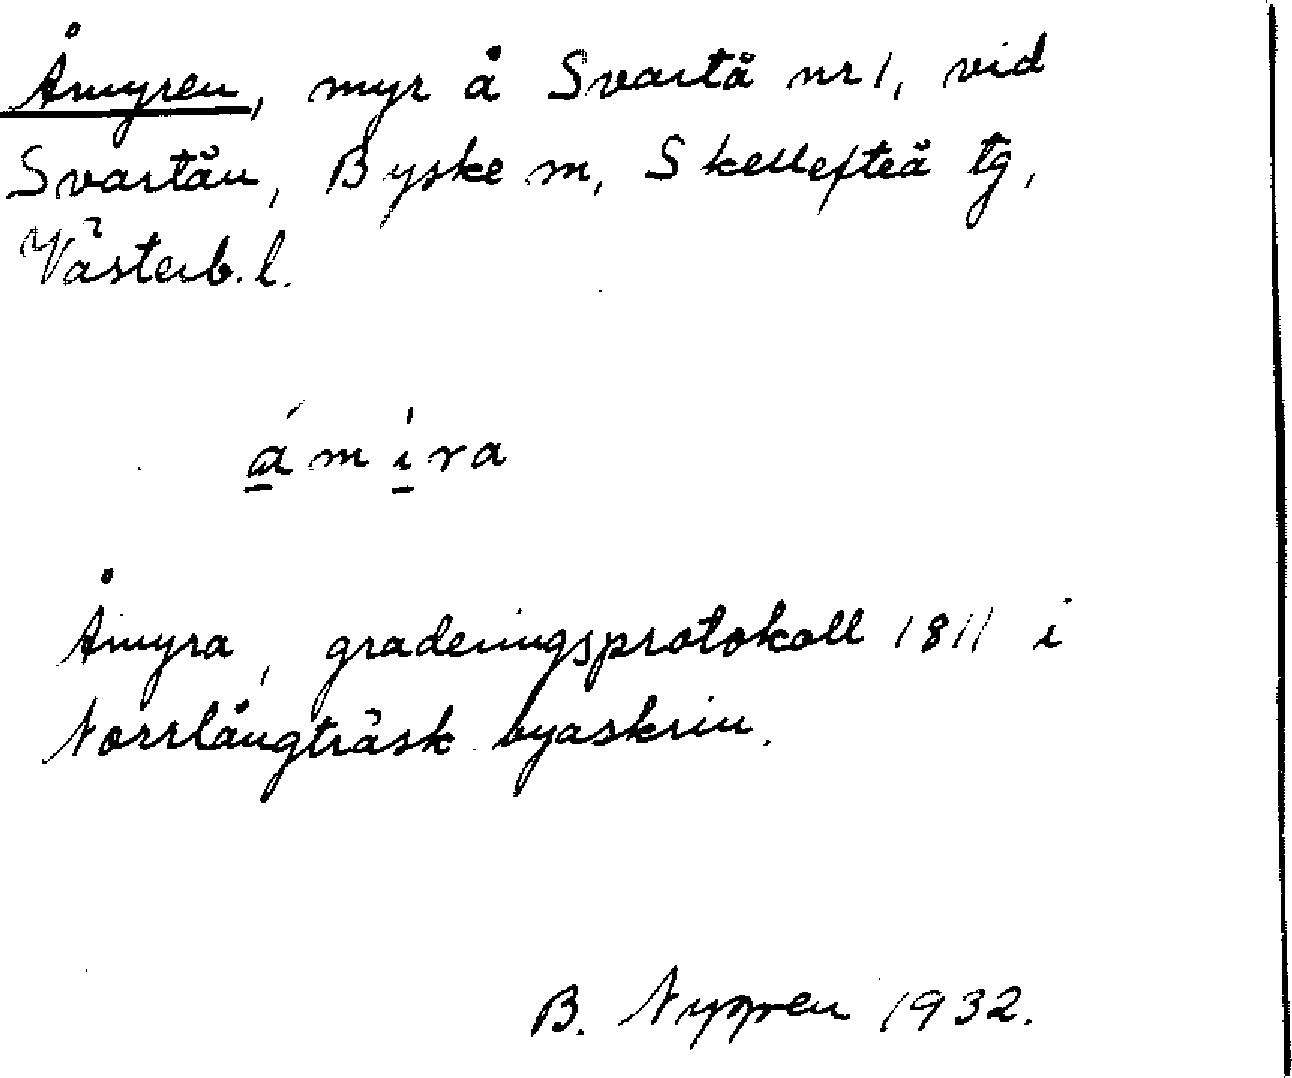 Åmyren, myr å Svartå nr 1, vid
Svartån, Byske m, Skellefteå tg,
Västerb. l.
á̲ m í̲ r a
Åmyra, graderingsprotokoll 1811 i
Norrlångträsk byaskrin.
B. Nygren 1932.